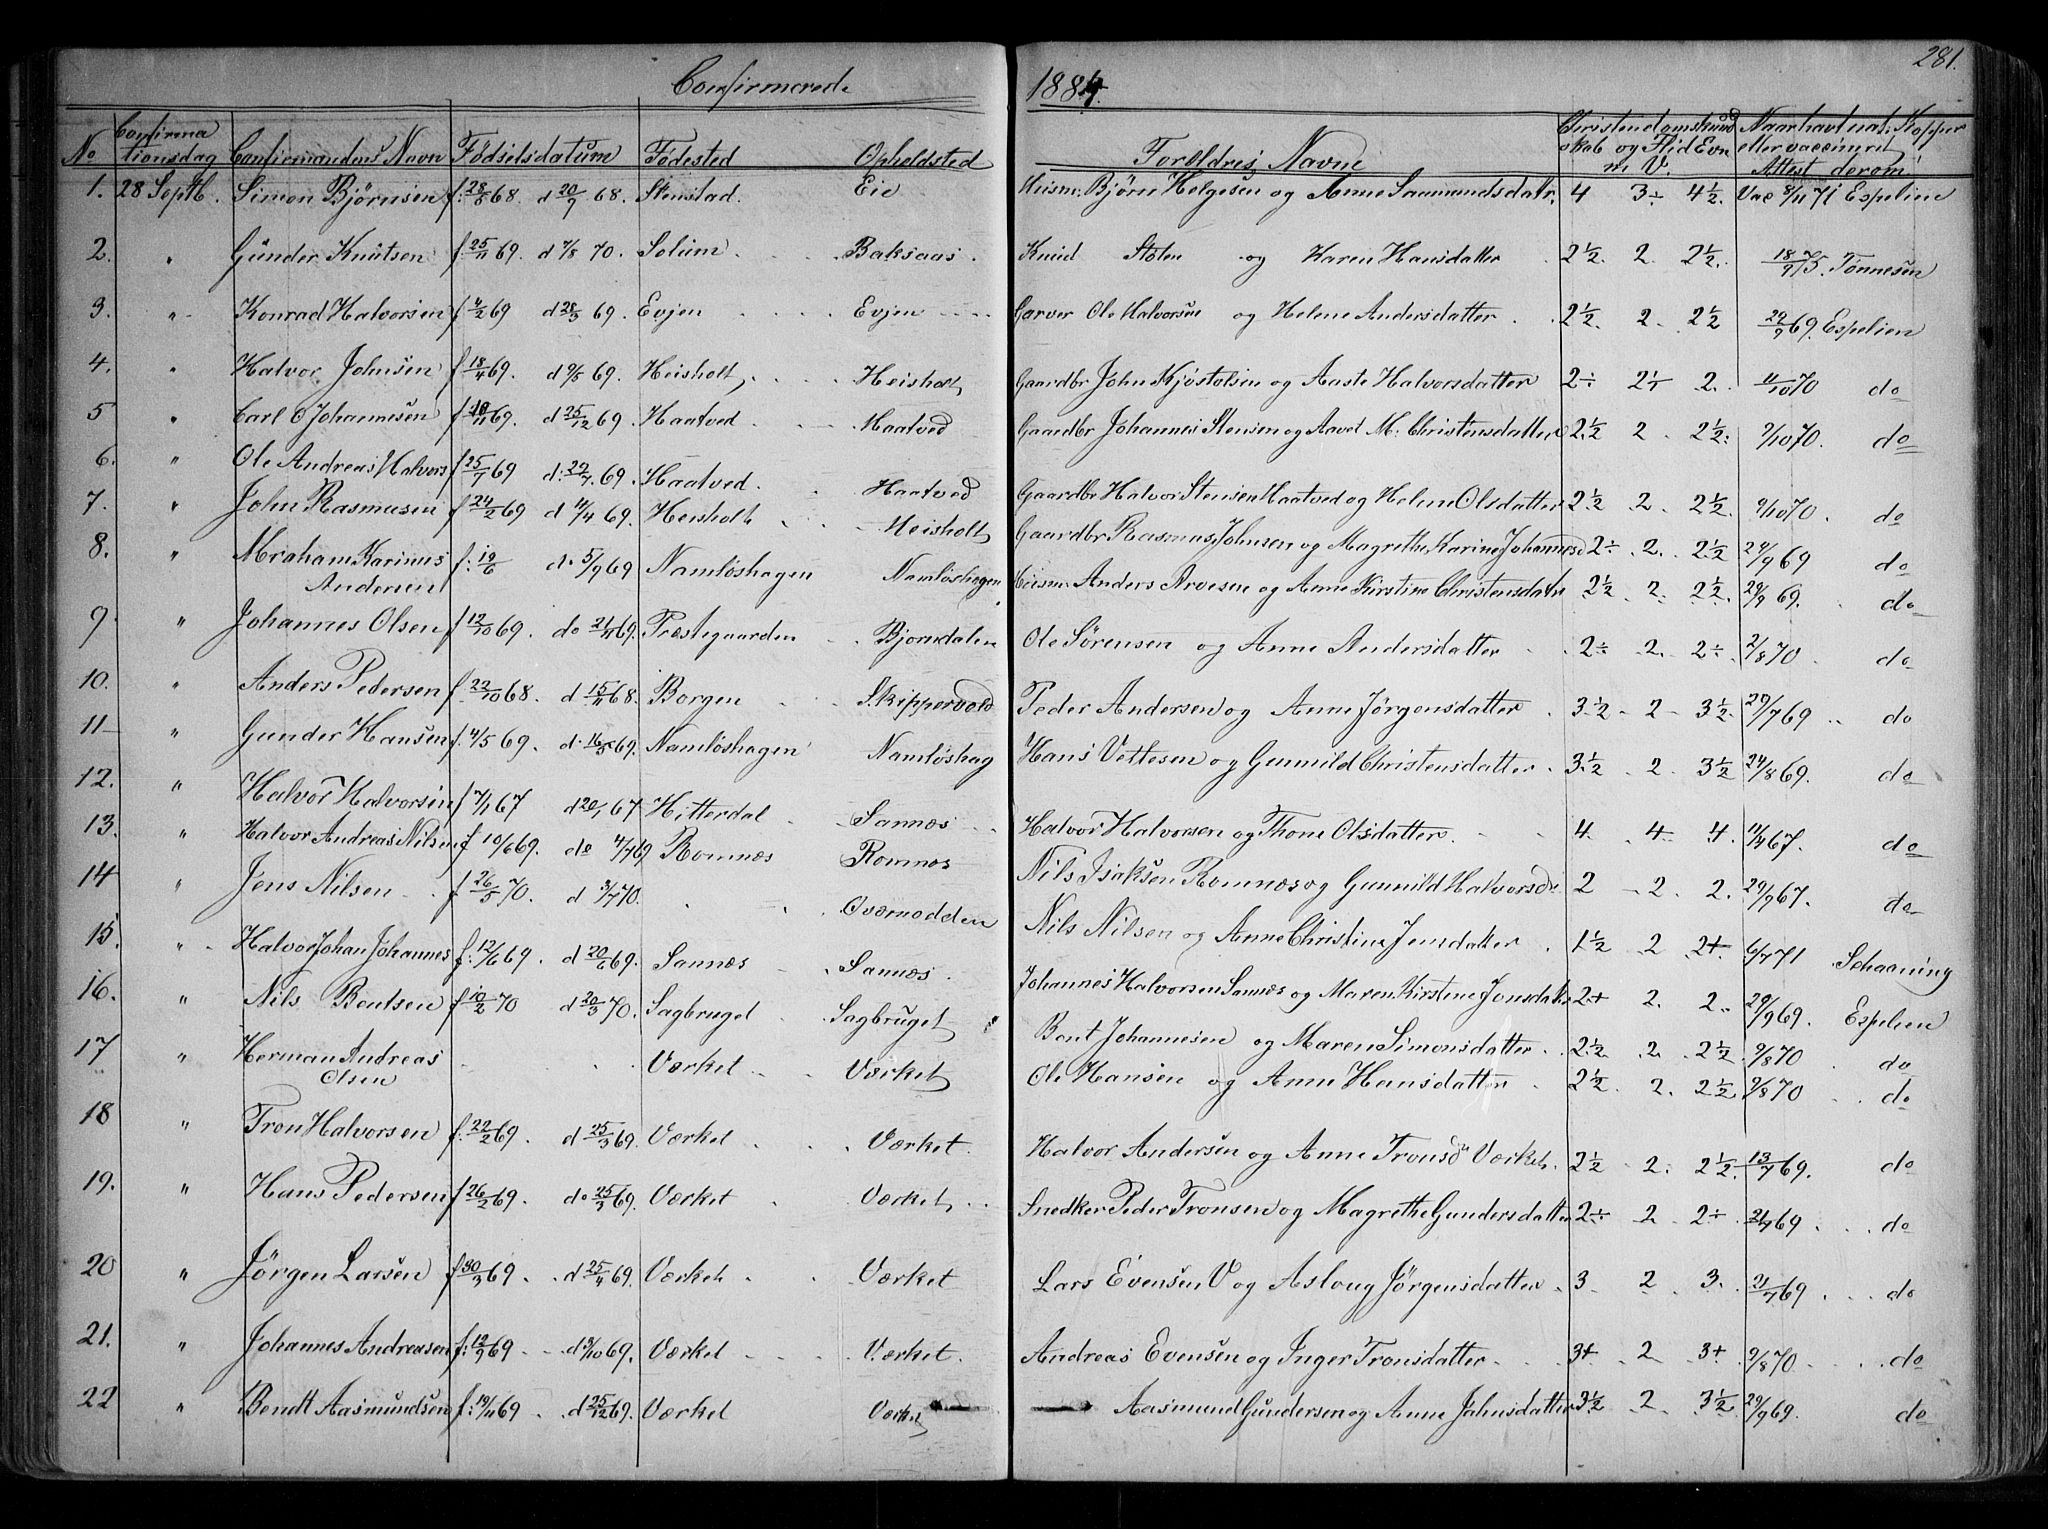 281.
Confirmerede 1884.
No Confirmationsdag Confirmandens Navn Fødselsdatum Fødested Opholdsted Forældres Navne Christendomskundskab og Flid Evn m. V. Naar havt nat. Kopper eller vaccinerit Attest derom
1. 28 Septb. Simon Bjørnsen f: 28/8 68. d 20/9 68. Stenstad. Eie Huusm: Bjørn Helgesen og Anne Saamundsdatr. 4 3÷ 4½. Vac 8/11 71 Espelien
2. " Gunder Knutsen f 25/11 69. d 7/8 70. Solum Baksaas. Knud Stolen og Karen Hansdatter 2½. 2. 2½. 18/9 75. Tønnesen
3. " Konrad Halvorsen f 4/2 69 d 28/3 69. Evjen Evjen Garver Ole Halvorsen og Helene Andersdatter 2½. 2. 2½ 29/9 69. Espelien
4. " Halvor Johnsen f 18/4 69. d 9/5 69. Heisholt Heisholt Gaardbr John Kjøstolsen og Aaste Halvorsdatter 2÷ 2÷ 2. 11/10 70 do
5 " Carl O Johannesen f 10/11 69. d 25/12 69. Haatved Haatved Gaardbr Johannes Stensen og Aavet M: Christensdatter 2½ 2. 2½. 9/10 70. do
6. " Ole Andreas Halvors f 25/7 69 d: 22/7. 69. Haatved. Haatved Gaardbr Halvor Stensen Haatved og Helene Olsdatter 2½ 2. 2½. 9/10 70. do
7. " John Rasmusen f 24/2 69 d 11/4 69. Heisholt Heisholt Gaardbr Rasmus Johnsen og Magrethe Karine Johannesd 2÷ 2. 2½ 29/9 69 do
8. " Abraham Karinus Andersen f: 19/6 d. 5/9 69 Namløshagen Namløshagen Huusm: Anders Arvesen og Anne Kirstine Christensdatr 2½ 2. 2½. 29/9 69. do
9. " Johannes Olsen f 12/10 69. do 21/11 69. Præstegaarden Bjorndalen Ole Sørensen og Anne Andersdatter 2÷ 2. 2÷ 2/8 70. do
10. " Anders Pedersen f 22/10 68. d 15/11 68. Borgen Skippervold Peder Andersen og Anne Jørgensdatter 3½ 2 3½. 20/7 69 do
11 " Gunder Hansen f. 4/5 69. d. 16/5 69. Namløshagen Namløshag Hans Vettesen og Gunnild Christensdatter 3½ 2 3½ 24/8 69. do
12. " Halvor Halvorsen f 7/1 67 d 20/1 67 Hitterdal Sannæs Halvor Halvorsen og Thone Olsdatter. 4 4 4. 11/4 67. do
13. " Halvor Andreas Nilsen f 10/6 69. do 4/7 69 Romnæs Romnæs Nils Isaksen Romnæs og Gunnild Halvorsdr 2 2. 2. 29/9 67. do
14 " Jens Nilsen f. 26/5 70. d 3/7 70. Overnodden Nils Nilsen og Anne Christine Jensdatter 1½ 2 2+ 6/7 71 Schaaning
15. " Halvor Johan Johannes f: 12/6 69. d 20/6 69. Sannæs Sannæs. Johannes Halvorsen Sannæs og Maren Kirstine Jonsdatr 2+ 2. 2. 29/9 69. Espelien
16. " Nils Bentsen f 10/2 70 d 20/3 70. Sagbruget Sagbruget Bent Johannesen og Maren Simonsdatter 2½. 2. 2½ 9/8 70 do
17 " Herman Andreas Olsen Værket Værket Ole Hansen og Anne Hansdatter 2½ 2. 2½ 9/8 70 do
18 " Tron Halvorsen f. 22/2 69. d 25/3 69. Værket Værket. Halvor Andersen og Anne Tronsdr Værket. 2½ 2. 2½. 13/7 69. do
19. " Hans Pedersen f 26/2 69. do 25/3 69. Værket Værket Snedker Peder Tronsen og Magrethe Gundersdatter 2÷ 2 2÷ 21/7 69 do
20 " Jørgen Larsen f 30/3 69. d 25/4 69. Værket Værket Lars Evensen V og Aslaug Jørgensdatter 3 2 3. 21/7 69 do
21. " Johannes Andreasen f: 12/9 69 d 3/10 69. Værket Værket. Andreas Evensen og Inger Tronsdatter 3+ 2 3+ 9/8 70. do
22 " Bendt Aasmundsen f: 19/11 69 d 25/12 69. Værket Værket Aasmund Gundersen og Anne Jahnsdatter 3½ 2 3½ 29/9 69. do